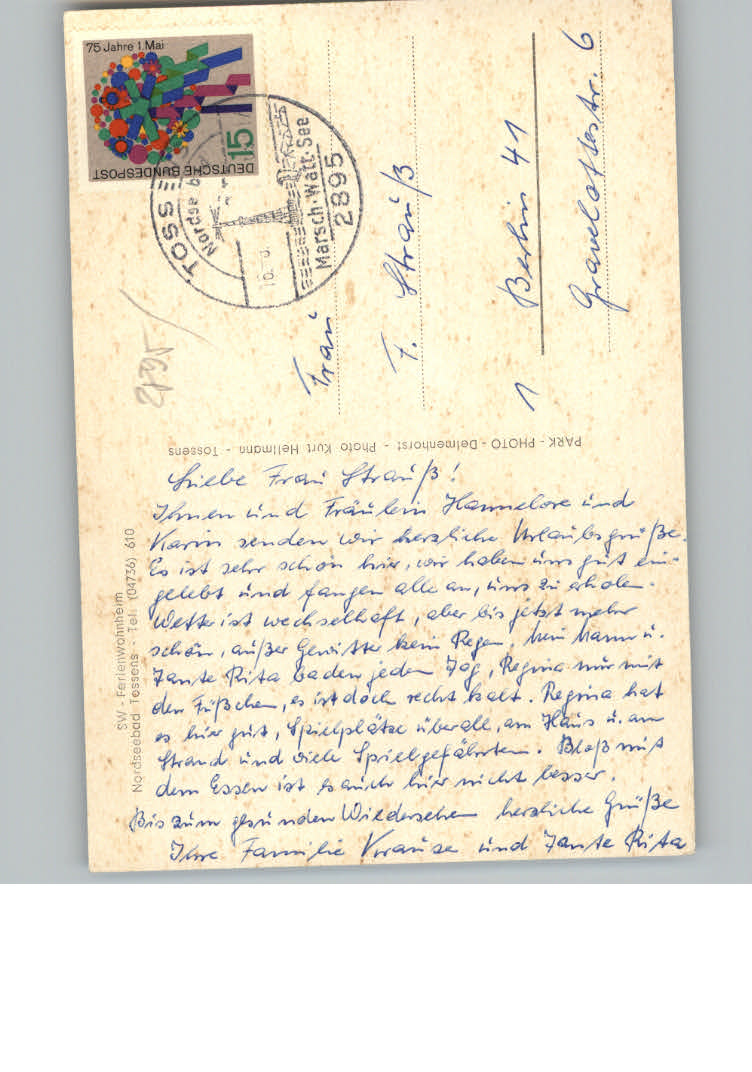 75 Jahre 1. Mai
15
DEUTSCHE BUNDESPOST
TOSS
Nordse
Marsch·Watt·See
2895
10.
Frau
F. Strauß
1 Berlin 41
Gravelottestr. 6
2895
PARK - PHOTO - Delmenhorst - Photo Kurt Hellmann - Tossens
SW - Ferienwohnheim
Nordseebad Tossens - Tel. (04736) 610
Liebe Frau Strauß!
Ihnen und Fräulein Hannelore und
Karin senden wir herzliche Urlaubsgrüße.
Es ist sehr schön hier, wir haben uns gut ein-
gelebt und fangen alle an, uns zu erholen.
Wetter ist wechselhaft, aber bis jetzt mehr
schön, außer Gewitter kein Regen. Mein Mann u.
Tante Rita baden jeden Tag, Regina nur mit
den Füßchen, es ist doch recht kalt. Regina hat
es hier gut, Spielplätze überall, am Haus u. am
Strand und viele Spielgefährten. Bloß mit
dem Essen ist es auch hier nicht besser.
Bis zum gesunden Wiedersehen herzliche Grüße
Ihre Familie Krause und Tante Rita